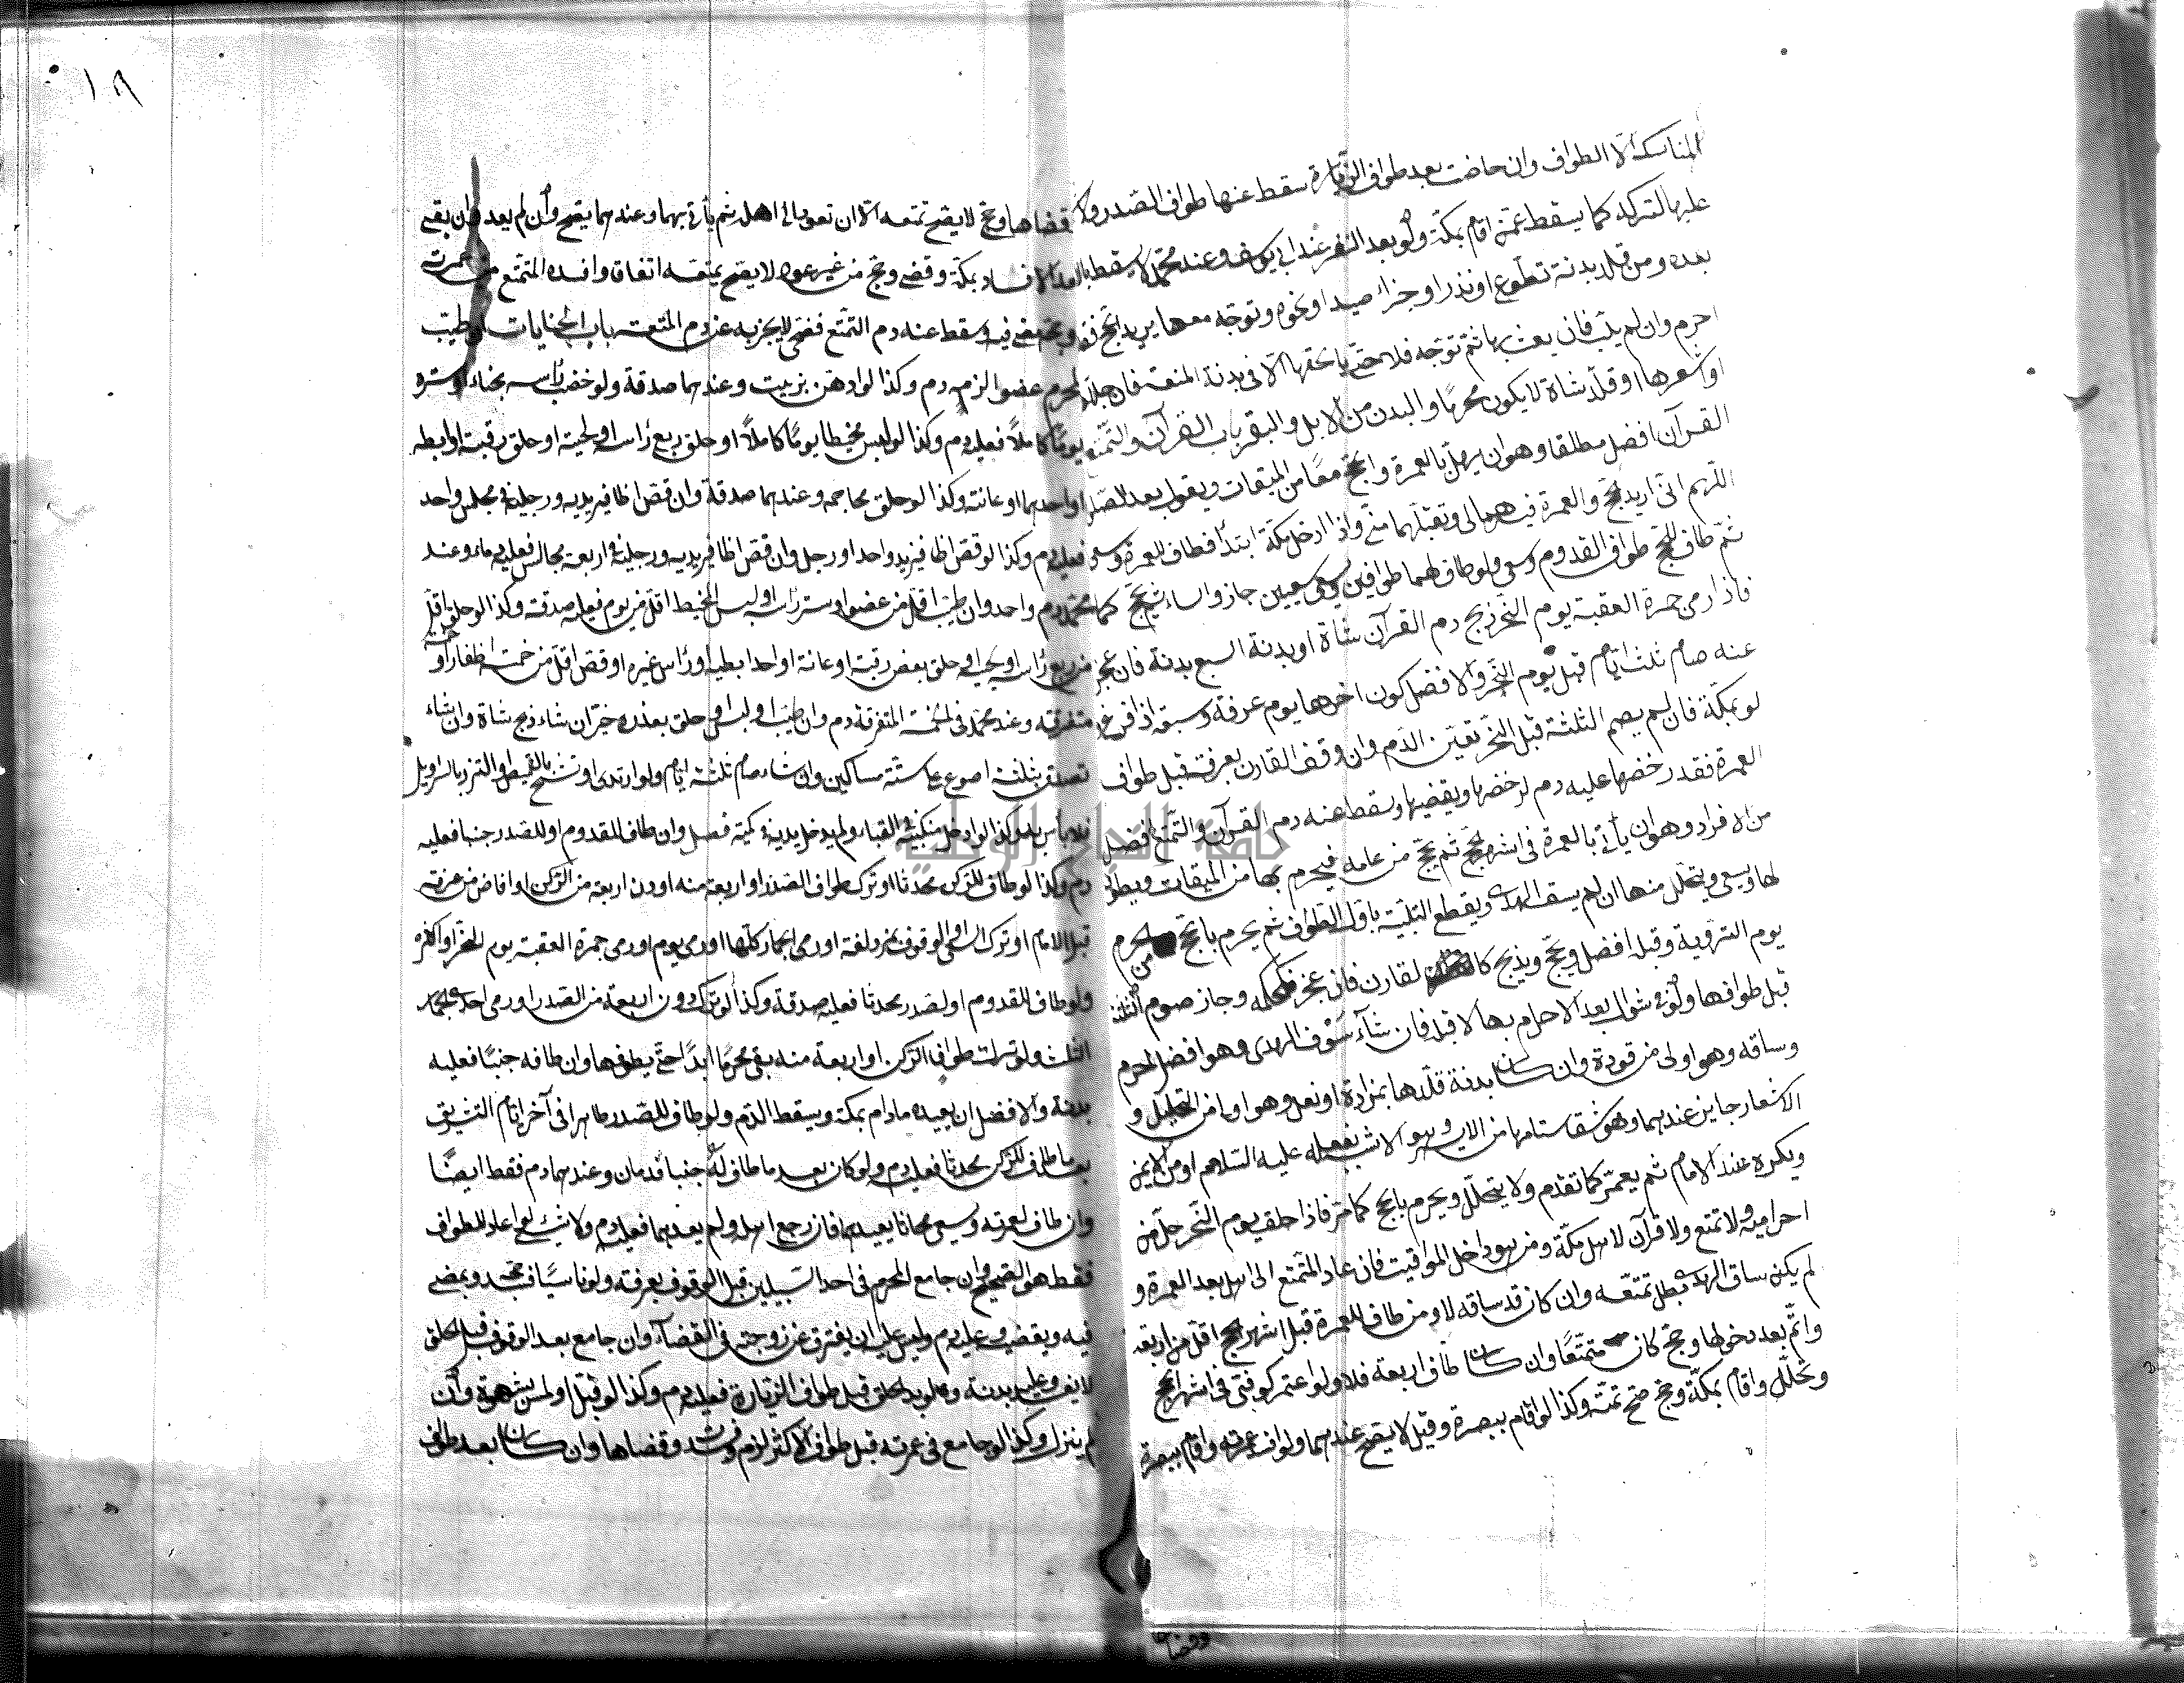 المناسك الا الطواف وان حاضت بعد طواف الزيارة سقط عنها طواف الصدر ولا
عليها لتركه كما يسقط عمن اقام بمكة ولو بعد النفر عند ابي يوسف وعند محمد لا يسقط بالعد
بعده ومن قلد بدنة تطوع او نذر او جزاء صيد او نحوه وتوجه معها يريد الحج فقد
احرم وان لم يلب فان بعث بها ثم توجه فلا حتى يلحقها الا في بدنة المتعة فان جللها
او اشعرها او قلد شاة لا يكون محرما والبدن من الابل والبقر باب القرآن والتمتع
القرآن افضل مطلقا وهو ان يهل بالعمرة والحج معا من الميقات ويقول بعد الصلا
اللهم اني اريد الحج والعمرة فيسرهما لي وتقبلهما مني واذا دخل مكة ابتدا فطاف للعمرة وسعى
ثم طاف للحج طواف القدوم وسعى ولو طاف لهما طوافين وسعى سعيين جاز واساء ثم يحج كما
فاذا رمى جمرة العقبة يوم النحر ذبح دم القرآن شاة او بدنة او سبع بدنة فان عجز
عنه صام ثلثة ايام قبل يوم النحر والافضل كون اخرها يوم عرفة وسبعة اذا فرغ
لو بمكة فان لم يصم الثلثة قبل النحر تعين الدم وان وقف القارن بعرفة قبل طواف
العمرة فقد رفضها عليه دم لرفضها ويقضيها وسقط عنه دم القرآن والتمتع افضل
من الافراد وهو ان يأتي بالعمرة في اشهر الحج ثم يحج من عامه فيحرم بها من الميقات ويطوف
لها ويسعى ويتحلل منها ان لم يسق الهدى ويقطع التلبية باول الطواف ثم يحرم بالحج من الحرم
يوم التروية وقبله افضل ويحج ويذبح كالقارن فان عجز فكحكمه وجاز صوم الثلثة
قبل طوافها ولو في شوال بعد الاحرام بها لا قبله فان شاء سوق الهدى وهو افضل احرم
وساقه وهو اولى من قوده وان كان بدنة قلدها بمزادة او نعل وهو اولى من التجليل و
الاشعار جايز عندهما وهو شق سنامها من الايسر وهو الاشبه بفعله عليه السلام او من الايمن
ويكره عند الامام ثم يعتمر كما تقدم ولا يتحلل ويحرم بالحج كما مر فاذا حلق يوم النحر حل من
احراميه ولا تمتع ولا قرآن لاهل مكة ومن هو داخل المواقيت فان عاد المتمتع الى اهله بعد العمرة و
لم يكن ساق الهدى بطل تمتعه وان كان قد ساقه لا ومن طاف للعمرة قبل اشهر الحج اقل من اربعة
واتم بعد دخولها وحج كان متمتعا وان كان طاف اربعة فلا ولو اعتمر كوفي في اشهر الحج
وتحلل واقام بمكة وحج صح تمتعه وكذا لو اقام ببصرة وقيل لا يصح عندهما ولو افسد عمرته واقام ببصرة
وقضاها
١٩
قضاها وحج لا يصح تمتعه الا ان تعود الى اهله ثم يأتي بهما وعندهما يصح وان لم يعد وان بقي
بعد الافساد بمكة وقضى وحج من غير عود لا يصح تمتعه اتفاقا وما افسده المتمتع من عمرته
وحجه مضى فيه وسقط عنه دم التمتع فضحى لا يجزيه عن دم المتعة باب الجنايات ان طيب
المحرم عضوا لزمه دم وكذا لو ادهن بزيت وعندهما صدقة ولو خضب راسه بحناء او ستره
يوما كاملا فعليه دم وكذا لو لبس مخيطا يوما كاملا او حلق ربع راسه او لحيته او حلق رقبته او ابطيه
او احدهما او عانته وكذا لو حلق محاجمه وعندهما صدقة وان قص اظافير يديه ورجليه في مجلس واحد
فعليه دم وكذا لو قص اظافير يد واحدة او رجل وان قص اظافير يديه ورجليه في اربعة مجالس فعليه دماء وعند
محمد دم واحد وان طيب اقل من عضو او ستر راسه او لبس المخيط اقل من يوم فعليه صدقة وكذا لو حلق اقل
من ربع راسه او لحيته او حلق بعض رقبته او عانته او احد ابطيه او راس غيره او قص اقل من خمسة اظفار او خمسة
متفرقة وعند محمد في الخمسة المتفرقة دم وان طيب او لبس او حلق بعذر خير ان شاء ذبح شاة وان شاء
تصدق بثلثة اصوع على ستة مساكين وان شاء صام ثلثة ايام ولو ارتدى او تشح بالقميص او اتزر بالسراويل
فلا بأس به وكذا لو ادخل منكبيه في القباء ولم يدخل يديه في كميه فصل وان طاف للقدوم او للصدر جنبا فعليه
دم وكذا لو طاف للركن محدثا او ترك طواف الصدر او اربعة منه او دون اربعة من الركن او افاض من عرفة
قبل الامام او ترك السعى او الوقوف بمزدلفة او رمى الجمار كلها او رمى يوم او رمى جمرة العقبة يوم النحر او اكثره
ولو طاف للقدوم او لصدر محدثا فعليه صدقة وكذا لو ترك دون اربعة من الصدر او رمى احدى الجمار
الثلث ولو ترك طواف الركن او اربعة منه بقي محرما ابدا حتى يطوفها وان طافه جنبا فعليه
بدنة والافضل ان يعيده مادام بمكة ويسقط الدم ولو طاف للصدر طاهرا في آخر ايام التشريق
بعد ما طاف للركن محدثا فعليه دم ولو كان بعد ما طاف له جنبا فدمان وعندهما دم فقط ايضا
وان طاف لعمرته وسعى محدثا يعيدهما فان رجع الى اهله ولم يعدهما فعليه دم ولا شئ لو اعاد للطواف
فقط هو الصحيح وان جامع المحرم في احد السبيلين قبل الوقوف بعرفة ولو ناسيا فسد حجه ويمضي
فيه ويقضيه وعليه دم وليس عليه ان يفترق عن زوجته في القضاء وان جامع بعد الوقوف قبل الحلق
لا يفسد وعليه بدنة ولو بعد الحلق قبل طواف الزيارة فعليه دم وكذا لو قبل او لمس بشهوة وان
لم ينزل وكذا لو جامع في عمرته قبل طواف الاكثر لزم دم وفسدت وقضاها وان كان بعد طواف
جامعة النجاح الوطنية